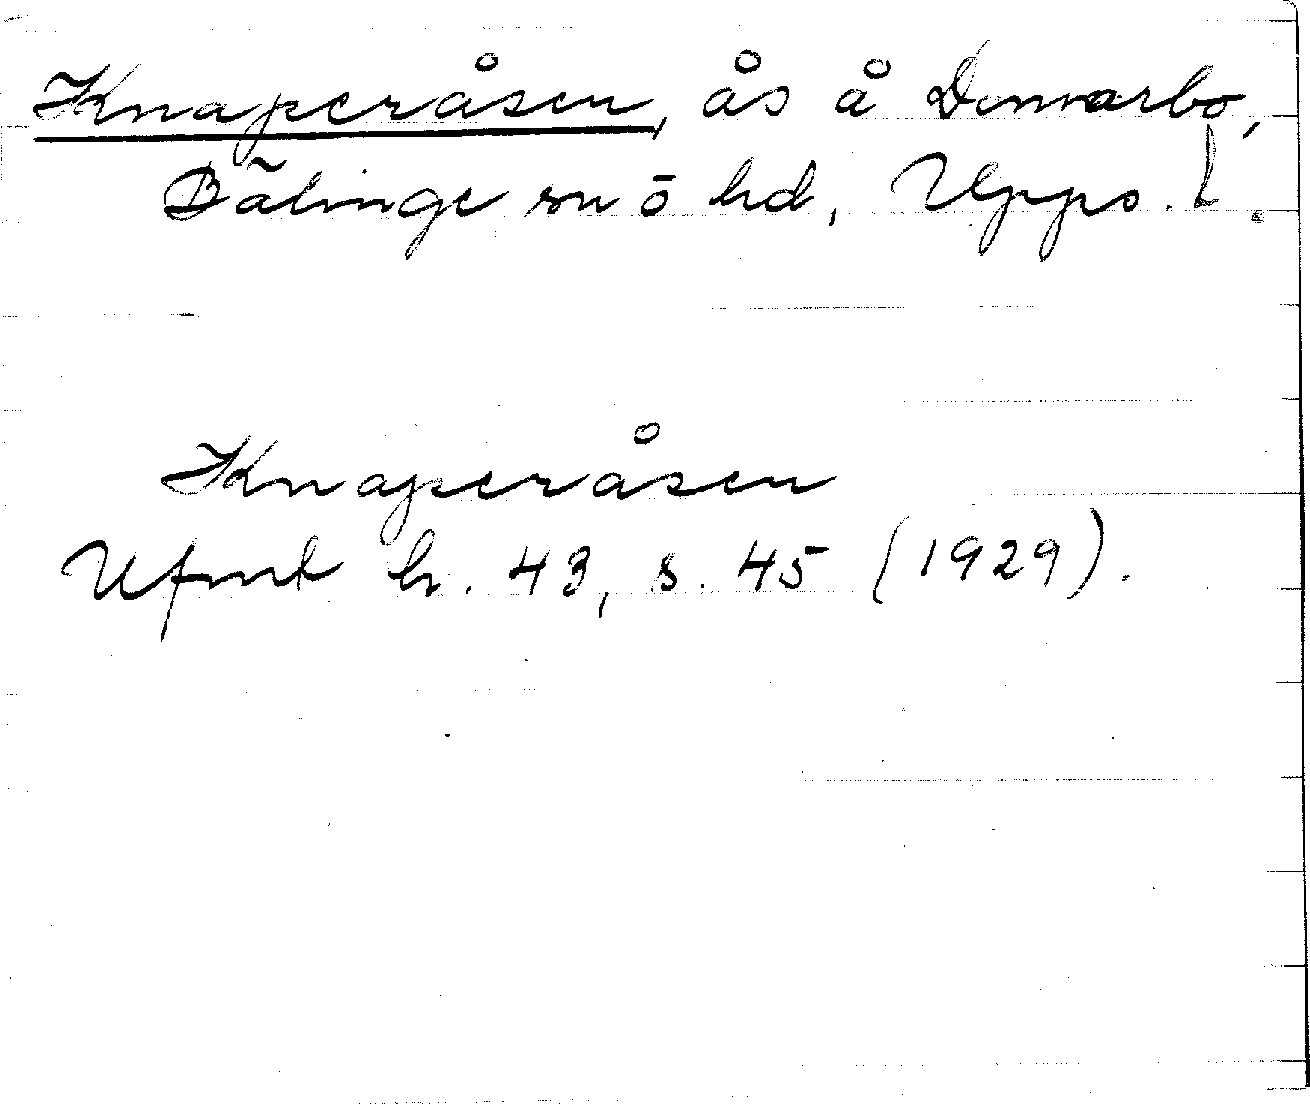 Knaperåsen, ås å Domarbo,
Bälinge sn o hd, Upps. l.
Knaperåsen
Ufmt h. 43, s. 45 (1929).